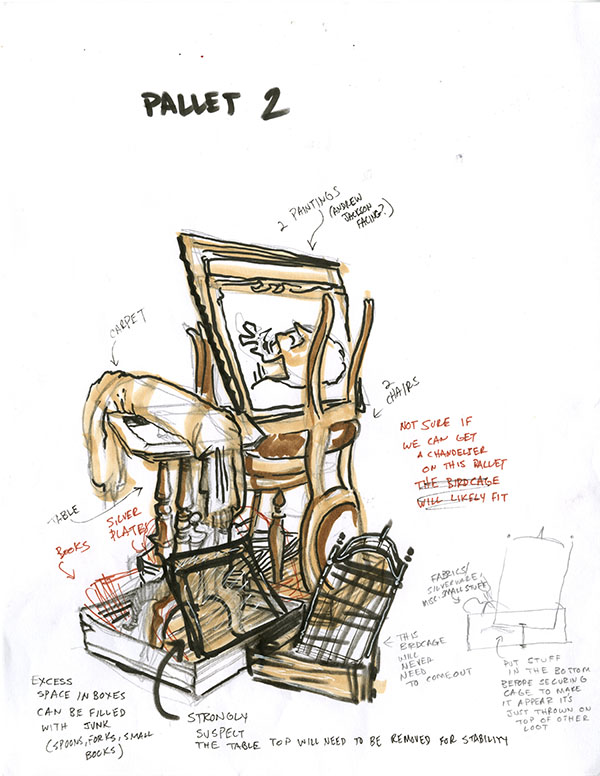 PALLET 2
2 PAINTINGS
(ANDREW
JACKSON
FACING?)
CARPET
2
CHAIRS
NOT SURE IF
WE CAN GET
A CHANDELIER
ON THIS PALLET
THE BIRDCAGE
WILL LIKELY FIT
TABLE
SILVER
PLATES
BOOKS
FABRICS/
SILVERWARE,
MISC. SMALL STUFF
THIS
BIRDCAGE
WILL
NEVER
NEED
TO COME OUT
PUT STUFF
IN THE BOTTOM
BEFORE SECURING
CAGE TO MAKE
IT APPEAR IT'S
JUST THROWN ON
TOP OF OTHER
LOOT
EXCESS
SPACE IN BOXES
CAN BE FILLED
WITH JUNK
(SPOONS, FORKS, SMALL
BOOKS)
STRONGLY
SUSPECT
THE TABLE TOP WILL NEED TO BE REMOVED FOR STABILITY